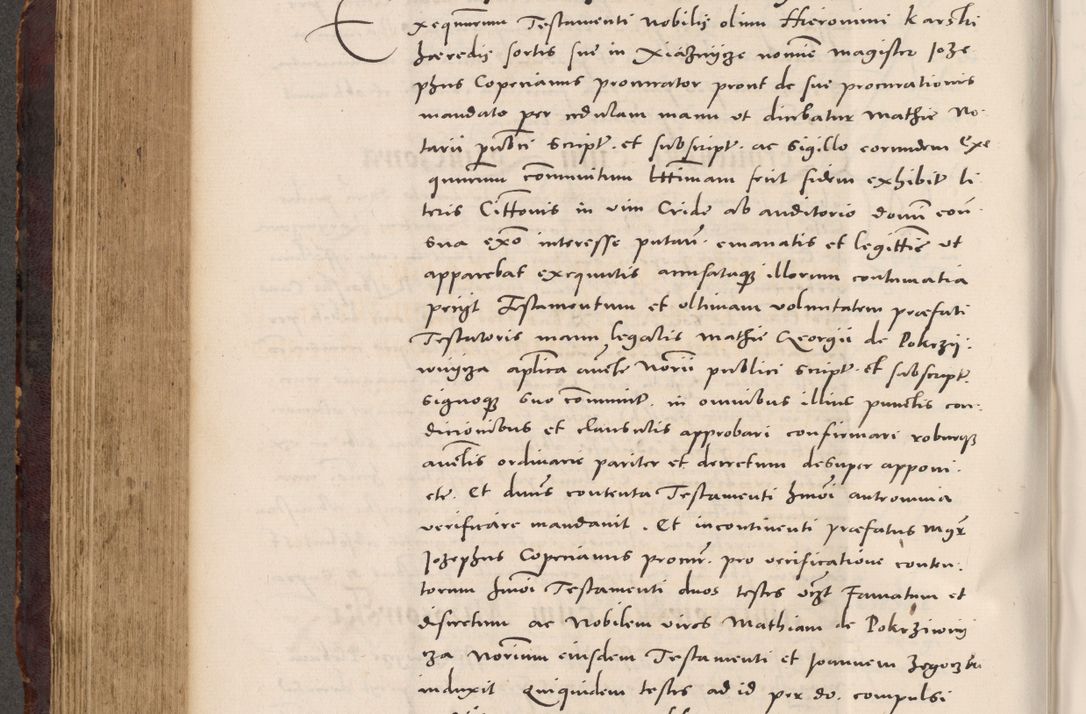 Exequutorum Testamenti Nobilis olim Hieronimi Karski
hæredis sortis suæ in Xiazniyze nomine magister Joze
phus Copecianus procurator prout de suæ procurationis
mandato per cedulam manu ut dicebatur Mathiæ No-
tarii publici script. et subscript. ac sigillo eorundem Exe
quutorum communitum lttimam fecit fidem exhibit li
teris Citтonis in vim Cridæ ab auditorio domi
sua exõ interesse putan. emanatis et legittimæ ut
apparebat exequutis accusataque illorum contumatia
petiit Testamentum et ultimam voluntatem præfati
Testatoris manu legalis Mathiæ Georgii de Pokrzy-
wnyza aplica autle Norii publici script. et subscript.
signoque suo communit. in omnibus illius punctis con-
dicionibus et clausulis approbari confirmari roburque
autlis ordinarie pariter et decretum desuper apponi.
etc. Et dnus contenta Testamenti hmoi
verificare mandavit. Et incontinenti præfatus Mgr
Jozephus Copecianus procur. pro verificatione conten-
torum hmoi Testamenti duos testes vizt Famatum et
discretum ac Nobilem viros Mathiam de Pokrziwni
cza Norium eiusdem Testamenti et Joannem
induxit Quiquidem testes ad id per do. compulsi